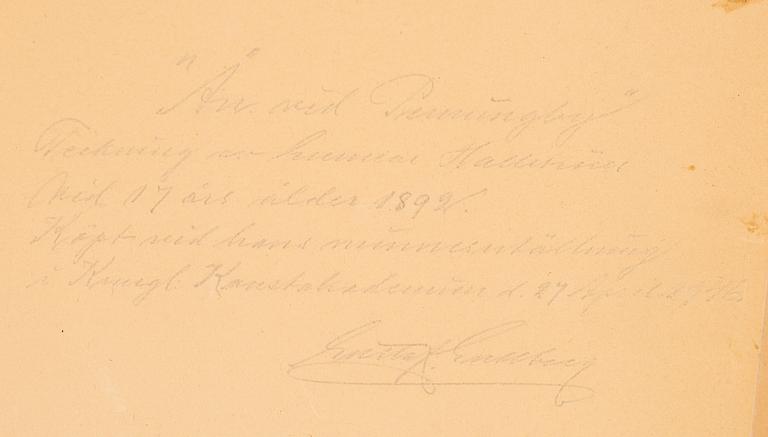 "Ån vid
Teckning av Gunnar Hallström
vid 17 års ålder 1892.
Köpt vid hans minnesutställning
i Kungl. Konstakademien d. 27 April
Gustaf